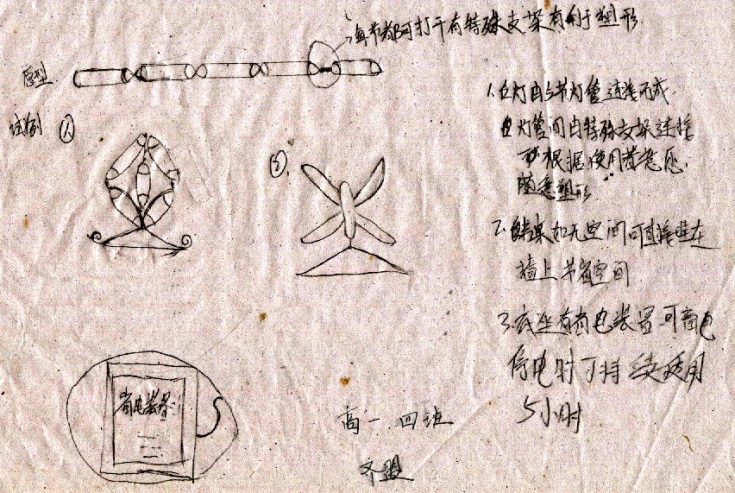 每节都可打干有特殊支架有利于塑形
原型
试例 ①
②
1.①灯由5节灯管连接而成
②灯管间由特殊支架连接
可根据使用者意愿
随意塑形
2.如无空间可直接挂在
墙上节省空间
3.底座有蓄电装置.可蓄电
停电时可持续使用
5小时
蓄电装置
高一.四班
齐